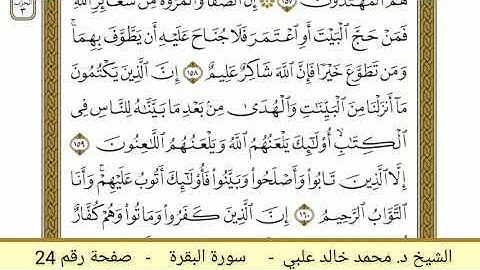 هُمُ ٱلْمُهْتَدُونَ ١٥٧ إِنَّ ٱلصَّفَا وَٱلْمَرْوَةَ مِن شَعَآئِرِ ٱللَّهِ
فَمَنْ حَجَّ ٱلْبَيْتَ أَوِ ٱعْتَمَرَ فَلَا جُنَاحَ عَلَيْهِ أَن يَطَّوَّفَ بِهِمَا ۚ
وَمَن تَطَوَّعَ خَيْرًا فَإِنَّ ٱللَّهَ شَاكِرٌ عَلِيمٌ ١٥٨ إِنَّ ٱلَّذِينَ يَكْتُمُونَ
مَآ أَنزَلْنَا مِنَ ٱلْبَيِّنَٰتِ وَٱلْهُدَىٰ مِنۢ بَعْدِ مَا بَيَّنَّٰهُ لِلنَّاسِ فِى
ٱلْكِتَٰبِ ۙ أُو۟لَٰٓئِكَ يَلْعَنُهُمُ ٱللَّهُ وَيَلْعَنُهُمُ ٱللَّٰعِنُونَ ١٥٩
إِلَّا ٱلَّذِينَ تَابُوا۟ وَأَصْلَحُوا۟ وَبَيَّنُوا۟ فَأُو۟لَٰٓئِكَ أَتُوبُ عَلَيْهِمْ ۚ وَأَنَا
ٱلتَّوَّابُ ٱلرَّحِيمُ ١٦٠ إِنَّ ٱلَّذِينَ كَفَرُوا۟ وَمَاتُوا۟ وَهُمْ كُفَّارٌ
الشيخ د. محمد خالد علبي - سورة البقرة - صفحة رقم 24